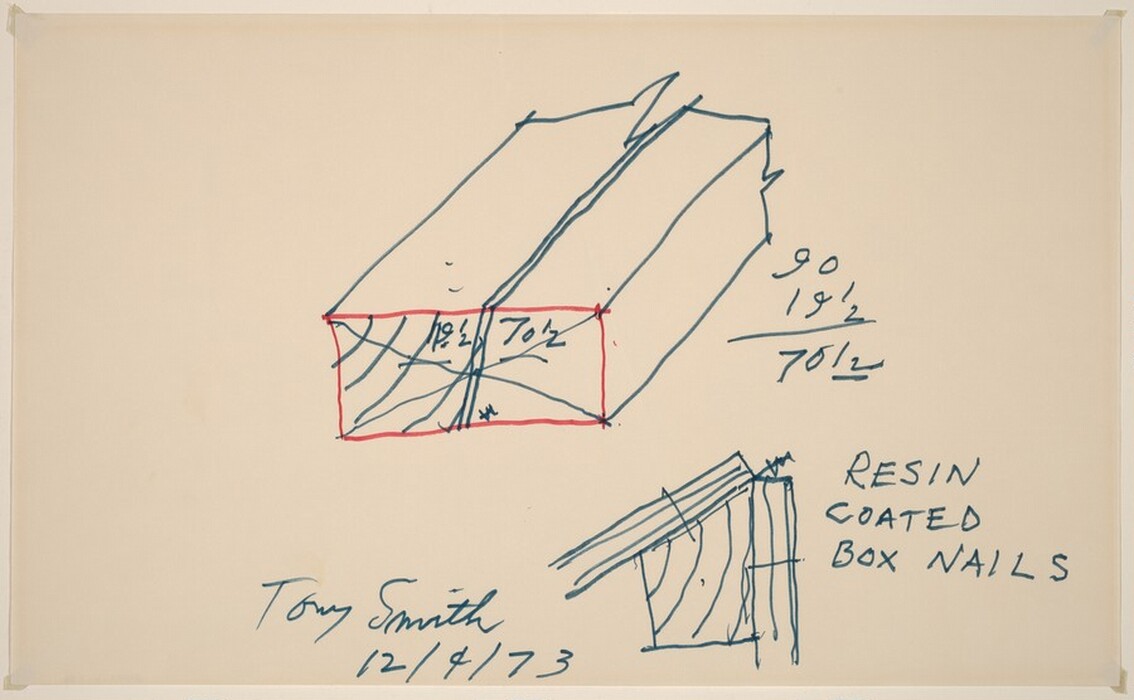 19½ 70½
90
19½
70½
RESIN
COATED
BOX NAILS
Tony Smith
12/4/73